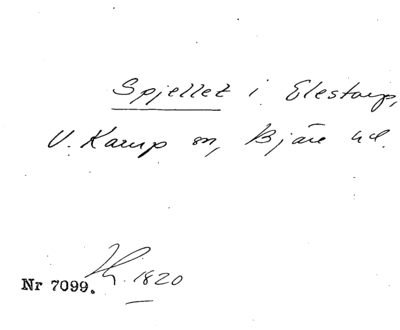 Spjellet i Elestorp,
V. Karup sn, Bjäre hd.
Nr 7099. 1820